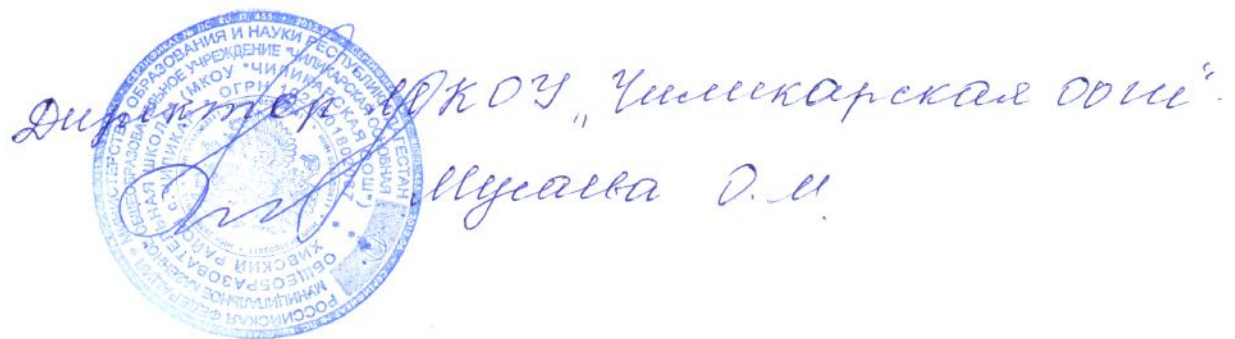 Директор МКОУ „Чиликарская оош".
Мусаева О.М.
МИНИСТЕРСТВО ОБРАЗОВАНИЯ И НАУКИ РЕСПУБЛИКИ ДАГЕСТАН
РОССИЙСКАЯ ФЕДЕРАЦИЯ
МУНИЦИПАЛЬНОЕ КАЗЕННОЕ ОБЩЕОБРАЗОВАТЕЛЬНОЕ УЧРЕЖДЕНИЕ "ЧИЛИКАРСКАЯ ОСНОВНАЯ
ОБЩЕОБРАЗОВАТЕЛЬНАЯ ШКОЛА" (МКОУ "ЧИЛИКАРСКАЯ ООШ")
ХИВСКИЙ РАЙОН
ОГРН